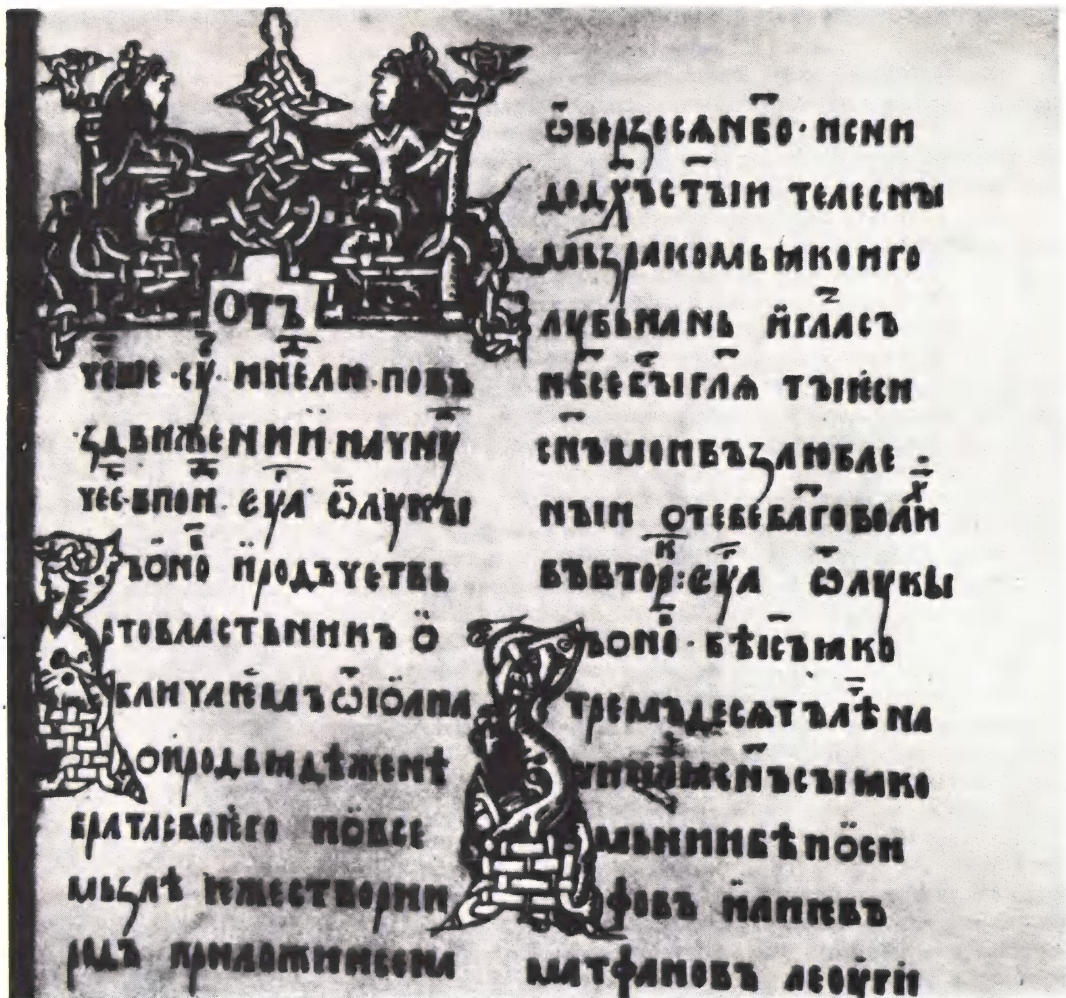 ОТЪ
ЧЕШЕ·СУ· ИНЕЛИ·ПОВЪ
ꙁДВИЖЕНИЇ НАЧИУ
ЧЕС·ВПОН· ЕУЛ ѾЛУКЫ
ЪОНО ИРОДЪЧЕТВЬ
РТОВЛАСТЬНИКЪ О
БЛИЧАЕВАЪ ѾІОАНА
ОИРОДЬꙖДѢЖЕНѢ
БРАТАСВОѤГО ИОВСЕ
МЬꙁЛѢ ИЖЕСТВОРИИ
РОДЪ ПРИЛОЖИИСЕНА
ѾВЕРꙁЕСѦНБО·ИСНИ
ДЕДХЪСТЪІИ ТЕЛЕСНЫ
МЬꙁРАКОМЬꙖКОИГО
ЛУБЬНАНЬ ИГЛАСЪ
НБСЕБЪІГЛѦ ТЪІѤСИ
СНЪМОИВЪꙁЛЮБЛЕ
НЫИ ОТЕБЕБЛГОВОЛИ
ВЪВТОР:ЕУЛ ѾЛУКЫ
ЪОНО·БѢІСЪꙖКО
ТРЕМЪДЕСѦТЪЛѢНА
СНЪСЫꙖКО
МЬНИИБѢИОСИ
ФОВЪ ИЛИЕВЪ
МАТФАНОВЪ ЛЕОУГИ